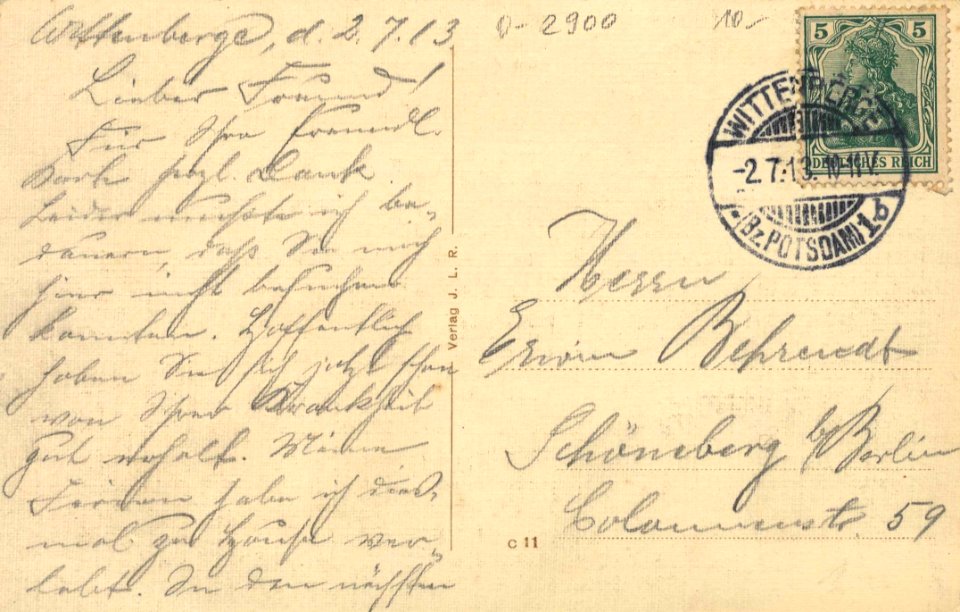 Wittenberge, d. 2.7.13
Lieber Freund!
Für Ihre freundl.
Karte herzl. Dank.
Leider mußte ich be-
dauern, daß Sie mich
hier nicht besuchen
konnten. Hoffentlich
haben Sie sich jetzt schon
von Ihrer Krankheit
gut erholt. Meine
Ferien habe ich dies-
mal zu Hause ver-
lebt. In den nächsten
Verlag J. L. R.
C 11
0-2900
10.-
5 5
DEUTSCHES REICH
WITTENBERGE
-2.7.13. 10-11V.
(Bz. POTSDAM) 1b
Herrn
Erwin Behrendt
Schöneberg b/Berlin
Colonnenstr. 59